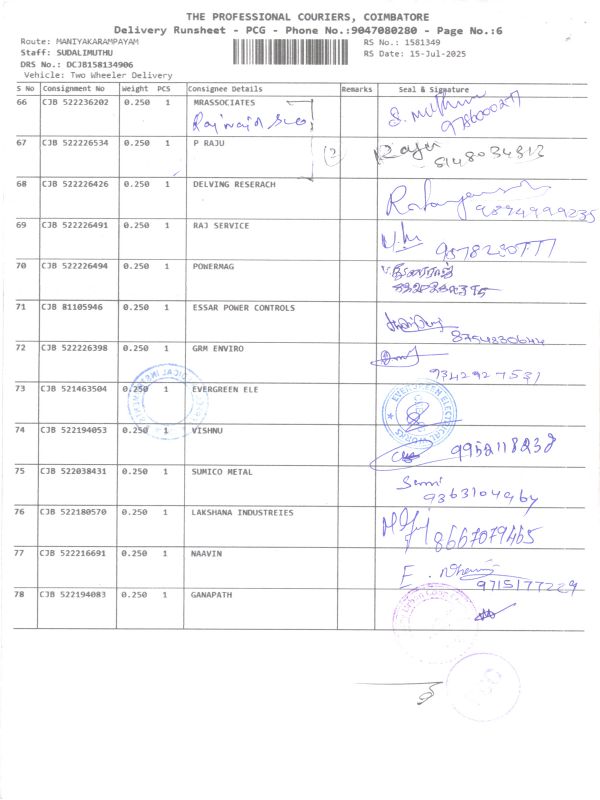 THE PROFESSIONAL COURIERS, COIMBATORE
Delivery Runsheet - PCG - Phone No.:9047080280 - Page No.:6
Route: MANIYAKARAMPAYAM
RS No.: 1581349
Staff: SUDALIMUTHU
RS Date: 15-Jul-2025
DRS No.: DCJB158134906
Vehicle: Two Wheeler Delivery
S No Consignment No Weight PCS Consignee Details Remarks Seal & Signature
66 CJB 522236202 0.250 1 MRASSOCIATES
67 CJB 522226534 0.250 1 P RAJU Raju
68 CJB 522226426 0.250 1 DELVING RESERACH
9894999235
69 CJB 522226491 0.250 1 RAJ SERVICE
70 CJB 522226494 0.250 1 POWERMAG
71 CJB 81105946 0.250 1 ESSAR POWER CONTROLS
72 CJB 522226398 0.250 1 GRM ENVIRO
9342927531
73 CJB 521463504 0.250 1 EVERGREEN ELE
EVERGREEN ELECTRICAL WORKS
74 CJB 522194053 0.250 1 VISHNU
9952118238
75 CJB 522038431 0.250 1 SUMICO METAL
9363104964
76 CJB 522180570 0.250 1 LAKSHANA INDUSTREIES
8667079465
77 CJB 522216691 0.250 1 NAAVIN
9715177229
78 CJB 522194083 0.250 1 GANAPATH